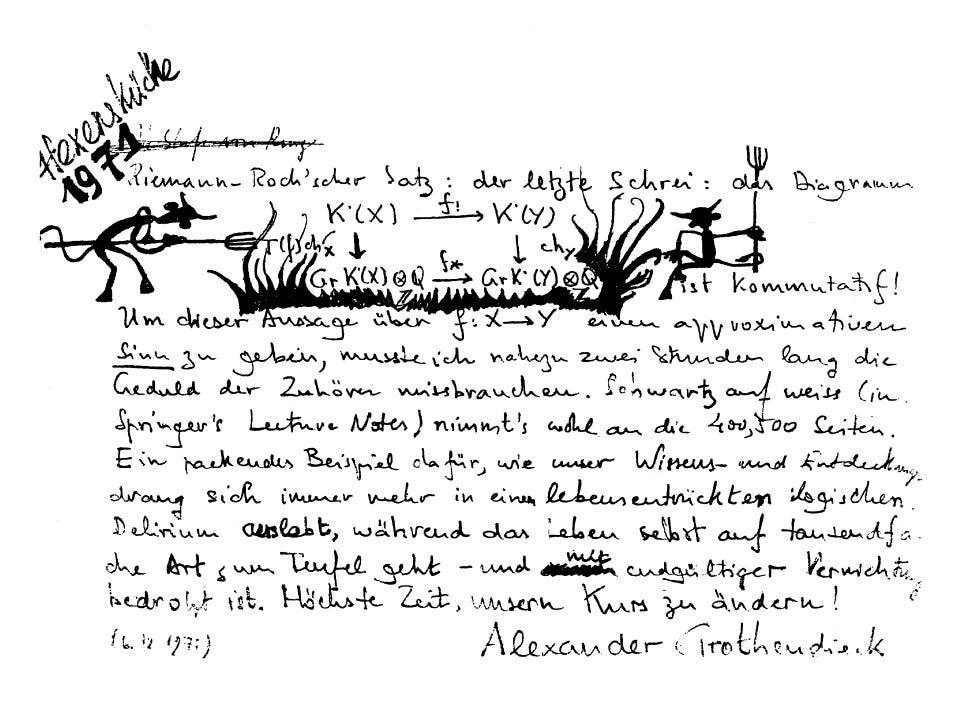 Hexenküche
1971
Riemann-Roch'scher Satz: der letzte Schrei: das Diagramm
K˙(X) f! → K˙(Y)
↓ ↓
Gr K˙(X)⊗Q f* → Gr K˙(Y)⊗Q
Z Z
ist kommutatif!
Um dieser Aussage über f: X→Y einen approximativen
Sinn zu geben, musste ich nahezu zwei Stunden lang die
Geduld der Zuhörer missbrauchen. Schwartz auf weiss (in
Springer's Lecture Notes) nimmt's wohl an die 400, 500 Seiten.
Ein packendes Beispiel dafür, wie unser Wissens- und Entdeckungs
drang sich immer mehr in einem lebensentrückten logischen
Delirium auslebt, während das Leben selbst auf tausendfa
che Art zum Teufel geht - und mit endgültiger Vernichtung
bedroht ist. Höchste Zeit, unsern Kurs zu ändern!
Alexander Grothendieck